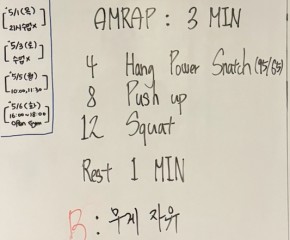 *5/1(토)
21시 수업x
*5/3(월)
수업x
*5/5(수)
10:00, 11:30
*5/6(목)
16:00~18:00
Open Gym
AMRAP : 3 MIN
4 Hang Power Snatch (95/65)
8 Push up
12 Squat
Rest 1 MIN
B : 무게 자유